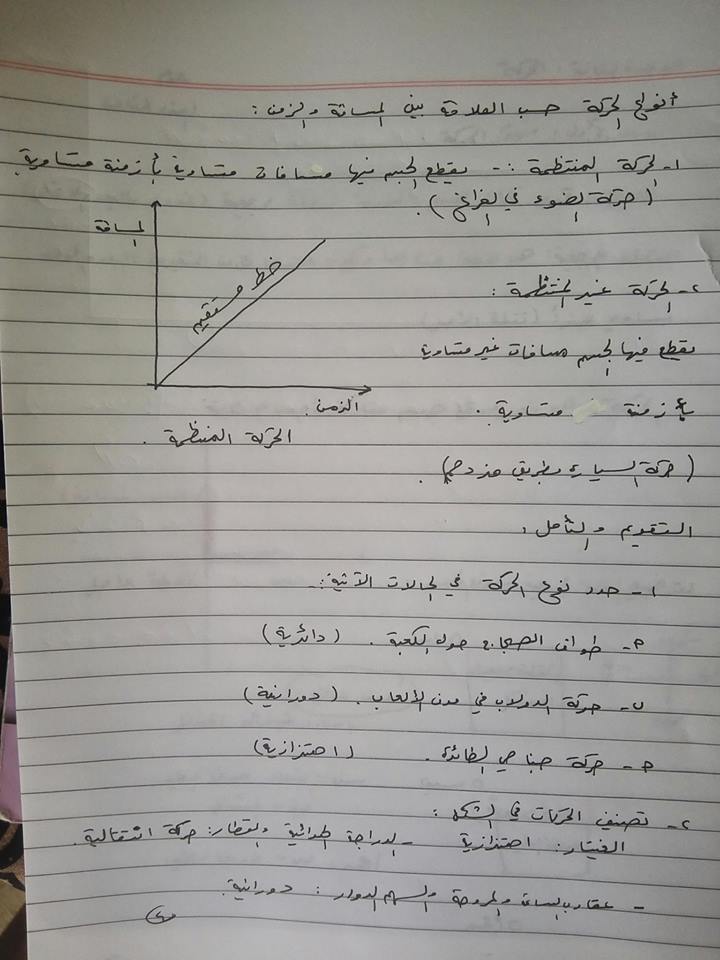 أنواع الحركة حسب العلاقة بين المسافة والزمن :
١- الحركة المنتظمة :- يقطع الجسم فيها مسافات متساوية بأزمنة متساوية.
(حركة الضوء في الفراغ).
المسافة
خط مستقيم
الزمن.
الحركة المنتظمة.
٢- الحركة غير المنتظمة :
يقطع فيها الجسم مسافات غير متساوية
بأزمنة متساوية.
(حركة السيارة بطريق مزدحم).
التقويم والتأمل :
١- حدد نوع الحركة في الحالات الآتية :
٢- طواف الحجاج حول الكعبة. (دائرية)
ب- حركة الدولاب في مدن الألعاب. (دورانية)
ح- حركة جناحي الطائرة. (اهتزازية)
٢- تصنيف الحركات في الشكل :
الغيتار: اهتزازية - الدراجة الهوائية والقطار: حركة انتقالية.
- عقارب الساعة والمروحة والسهم الدوار : دورانية.